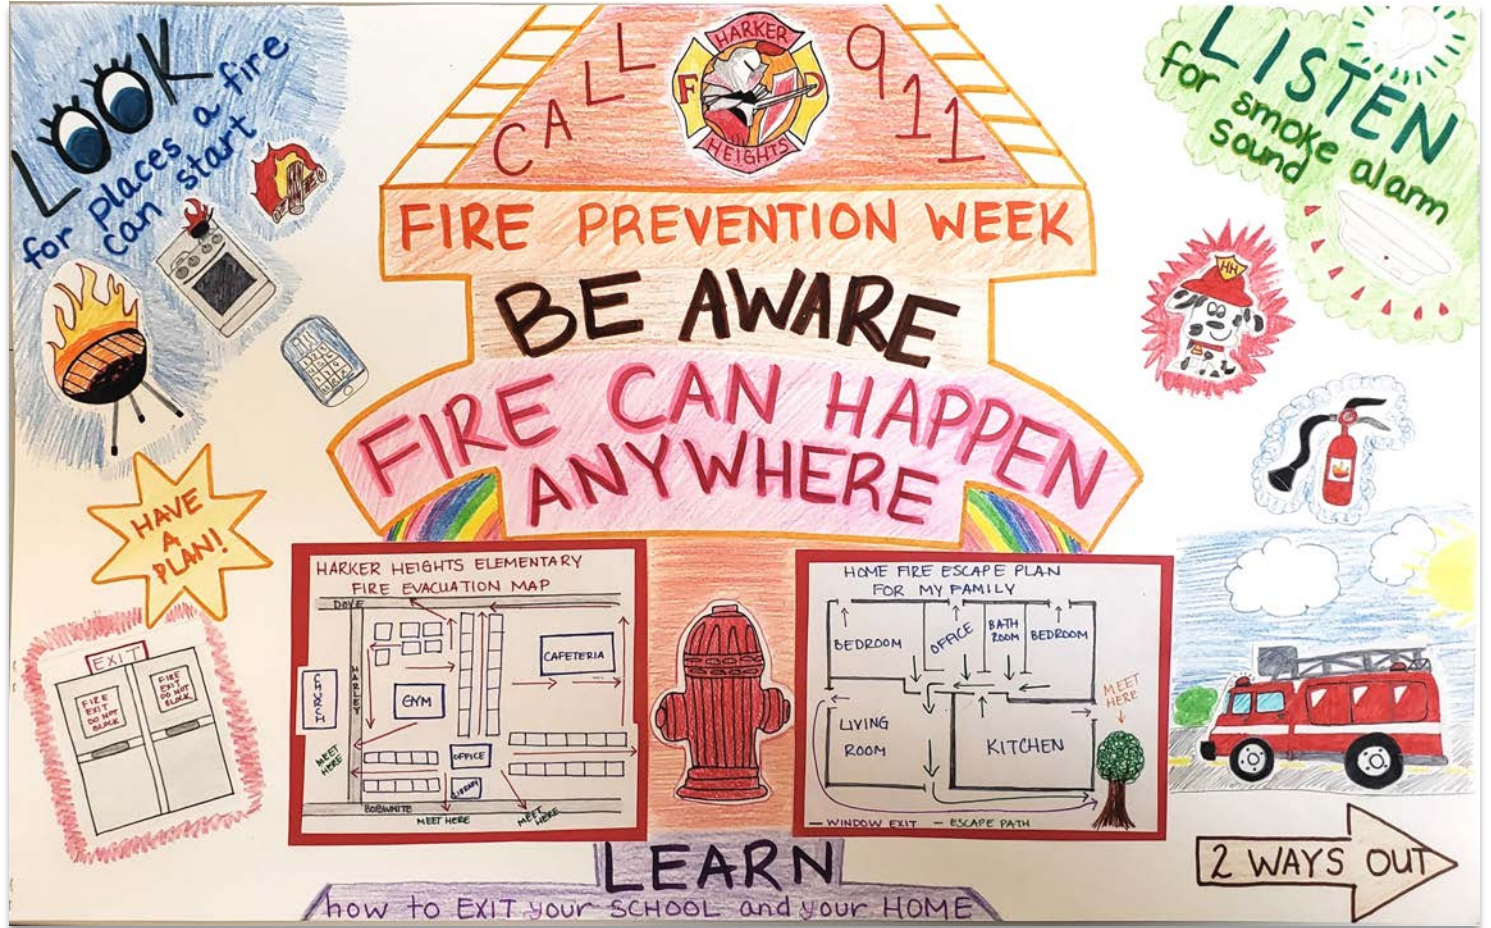 LOOK
for places a fire
can start
CALL 911
HARKER
F D
HEIGHTS
LISTEN
for smoke alarm
sound
FIRE PREVENTION WEEK
BE AWARE
FIRE CAN HAPPEN
ANYWHERE
HH
HAVE
A
PLAN!
EXIT
FIRE
EXIT
DO NOT
BLOCK
FIRE
EXIT
DO NOT
BLOCK
HARKER HEIGHTS ELEMENTARY
FIRE EVACUATION MAP
DOVE
CHURCH
HARLEY
GYM
CAFETERIA
MEET
HERE
OFFICE
LIBRARY
BOBWHITE
MEET HERE
MEET
HERE
HOME FIRE ESCAPE PLAN
FOR MY FAMILY
BEDROOM
OFFICE
BATH
ROOM
BEDROOM
LIVING
ROOM
KITCHEN
MEET
HERE
— WINDOW EXIT — ESCAPE PATH
2 WAYS OUT
LEARN
how to EXIT your SCHOOL and your HOME